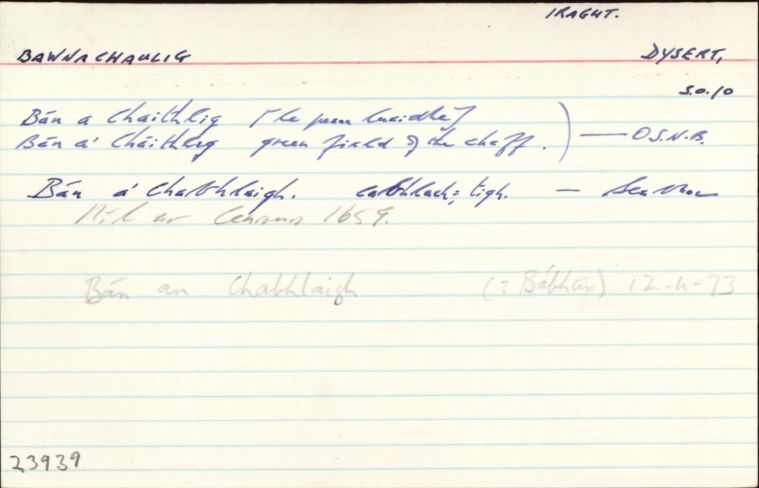 IRAGHT.
BAWNACHAULIG DYSERT,
S.O. 10
Bán a Chaithlig [le peann luaidhe]
Bán a' Cháithlig green field of the chaff. ) — O.S.N.B.
Bán a' Chabhlaigh. cabhlach; tigh. —
Níl ar Census 1659.
Bán an Chabhlaigh (? Bábhún) 12-4-73
23939